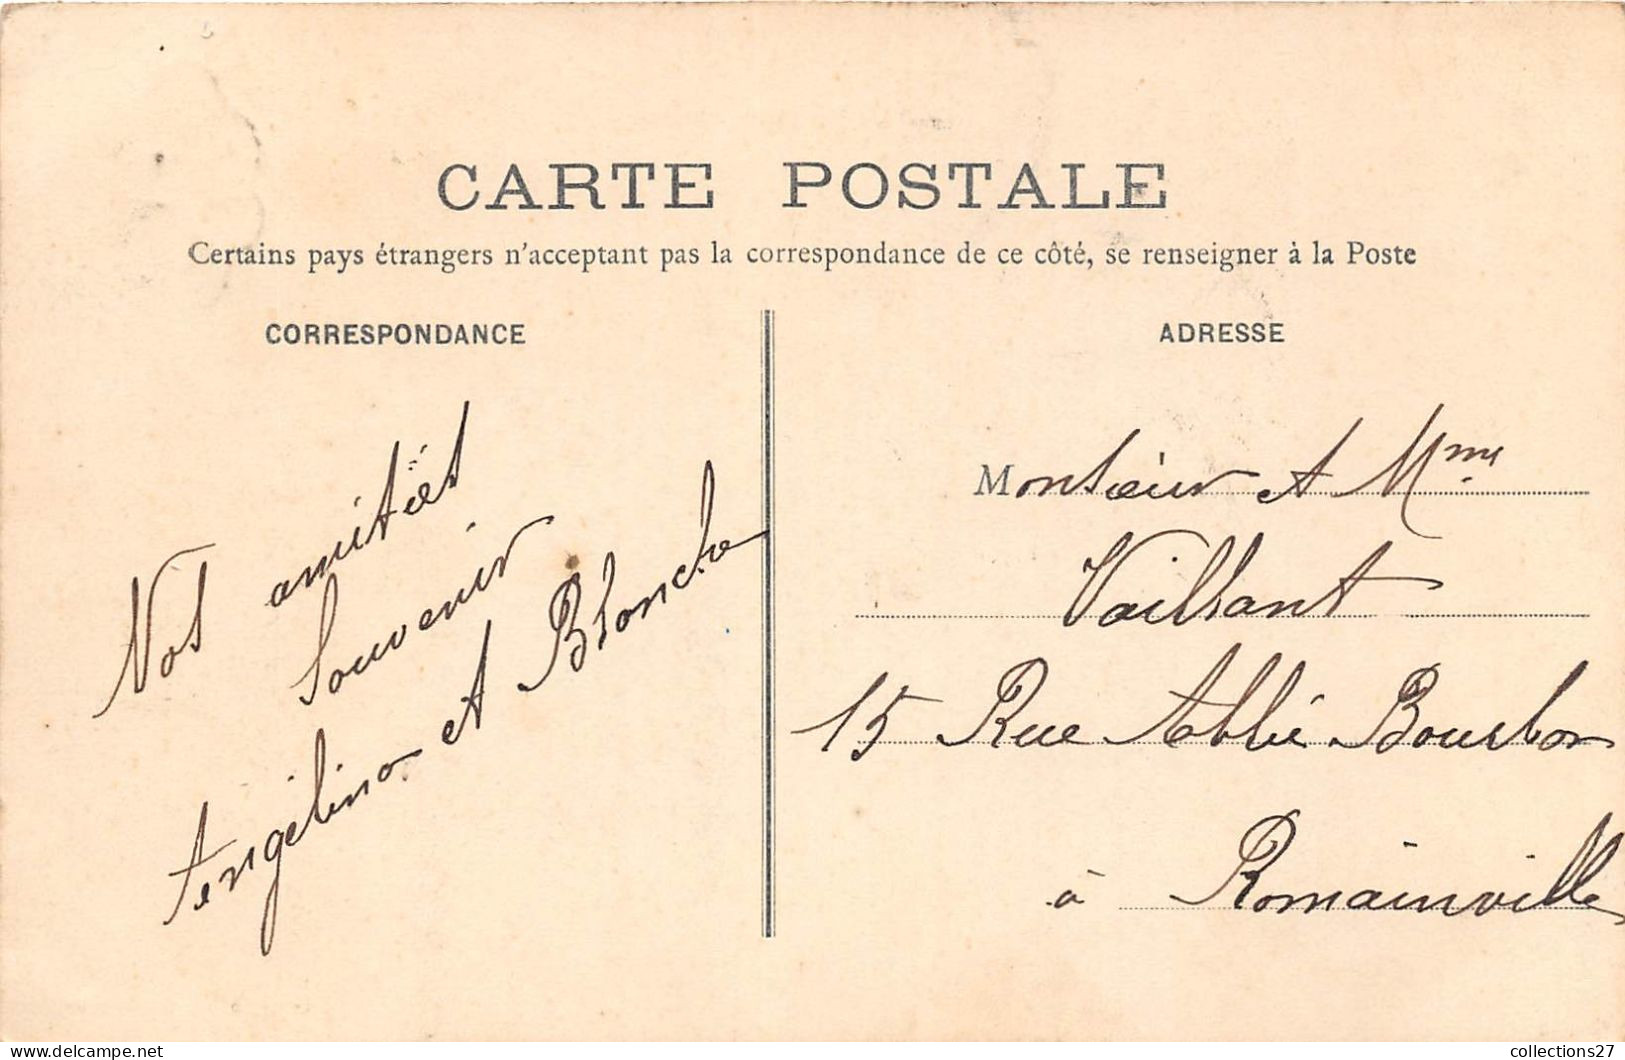 CARTE POSTALE
Certains pays étrangers n'acceptant pas la correspondance de ce côté, se renseigner à la Poste
CORRESPONDANCE
Nos amitiés
Souvenir
Angélina et Blanche
ADRESSE
Monsieur et Mme
Vaillant
15 Rue Abbé Bourbon
à Romainville
collections27